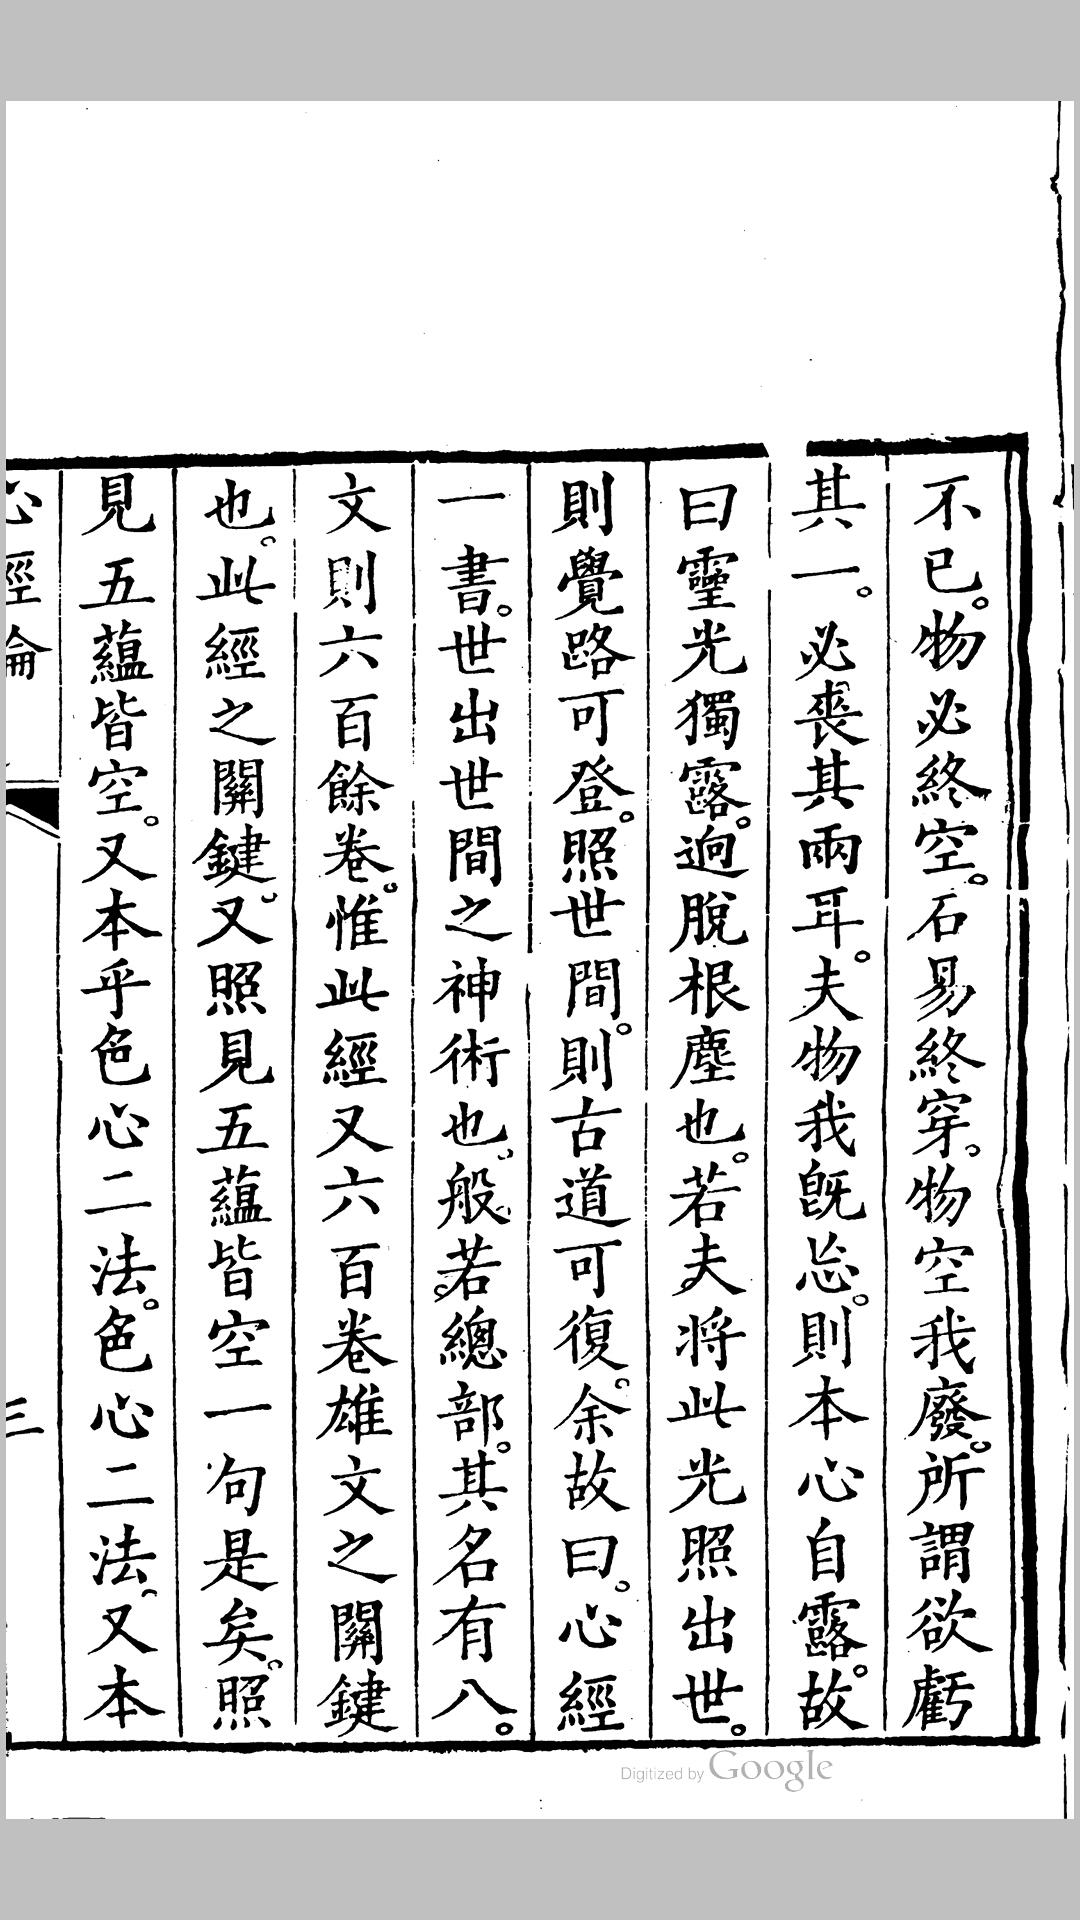 不已。物必終空。石易終穿。物空我廢。所謂欲虧
其一。必喪其兩耳。夫物我旣忘。則本心自露。故
曰靈光獨露。逈脫根塵也。若夫將此光照出世。
則覺路可登。照世間。則古道可復。余故曰。心經
一書。世出世間之神術也。般若總部。其名有八。
文則六百餘卷。惟此經又六百卷雄文之關鍵
也。此經之關鍵。又照見五蘊皆空一句是矣。照
見五蘊皆空。又本乎色心二法。色心二法。又本
心經論
三
Digitized by Google